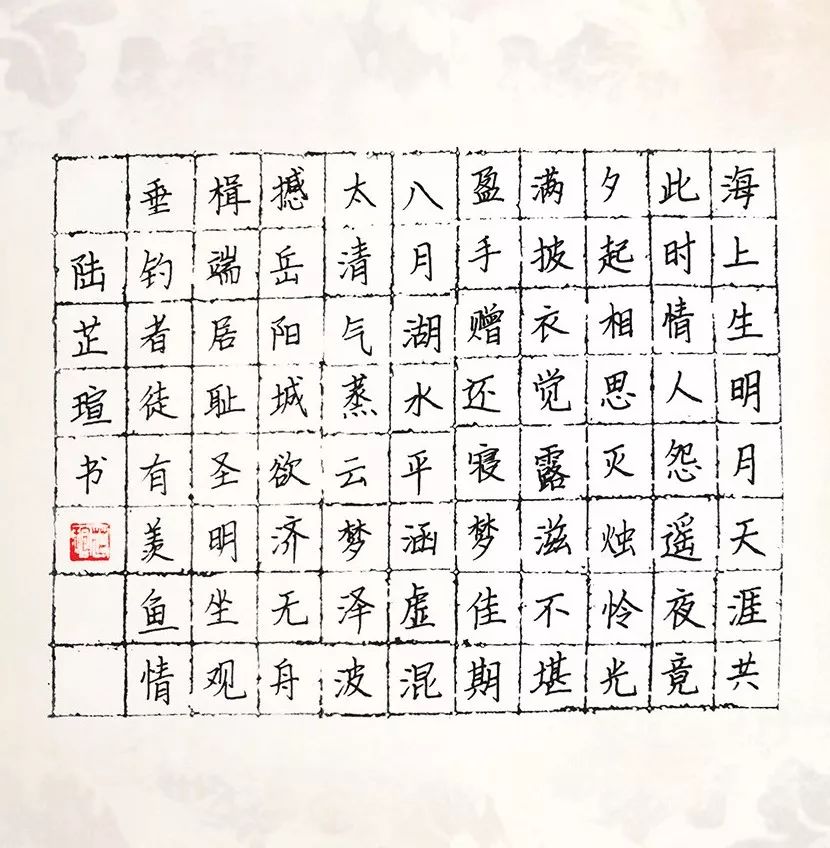 海上生明月天涯共
此时情人怨遥夜竟
夕起相思灭烛怜光
满披衣觉露滋不堪
盈手赠还寝梦佳期
八月湖水平涵虚混
太清气蒸云梦泽波
撼岳阳城欲济无舟
楫端居耻圣明坐观
垂钓者徒有羡鱼情
陆芷瑄书